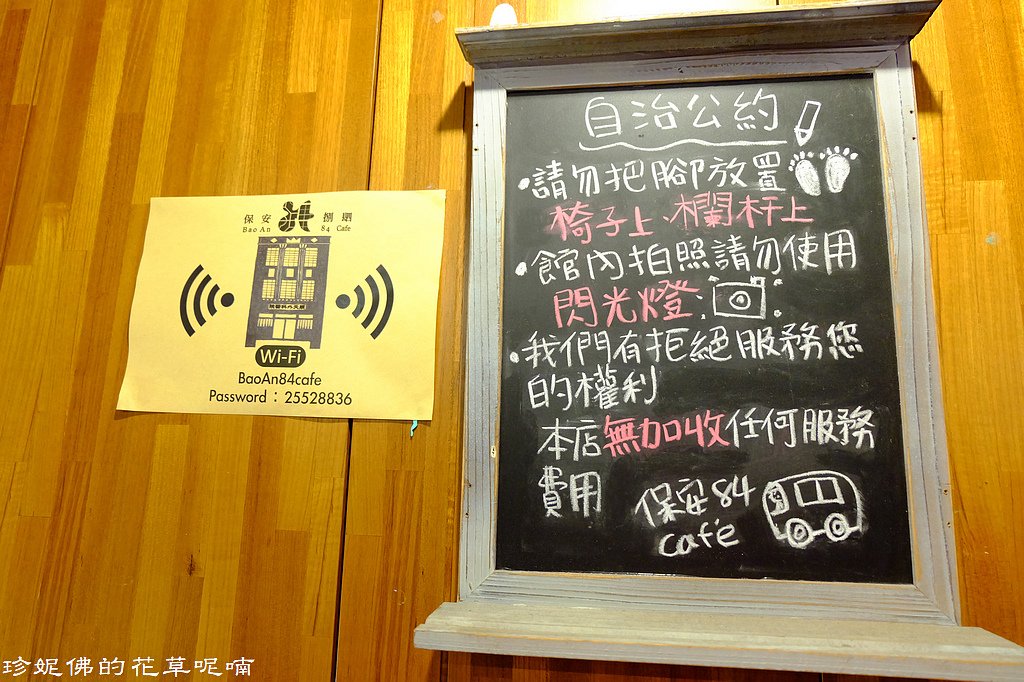 保安 捌肆
BaoAn 84 Cafe
Wi-Fi
BaoAn84cafe
Password：25528836
自治公約
•請勿把腳放置
椅子上、欄杆上
•館內拍照請勿使用
閃光燈
•我們有拒絕服務您
的權利
本店無加收任何服務
費用
保安84
café
珍妮佛的花草呢喃